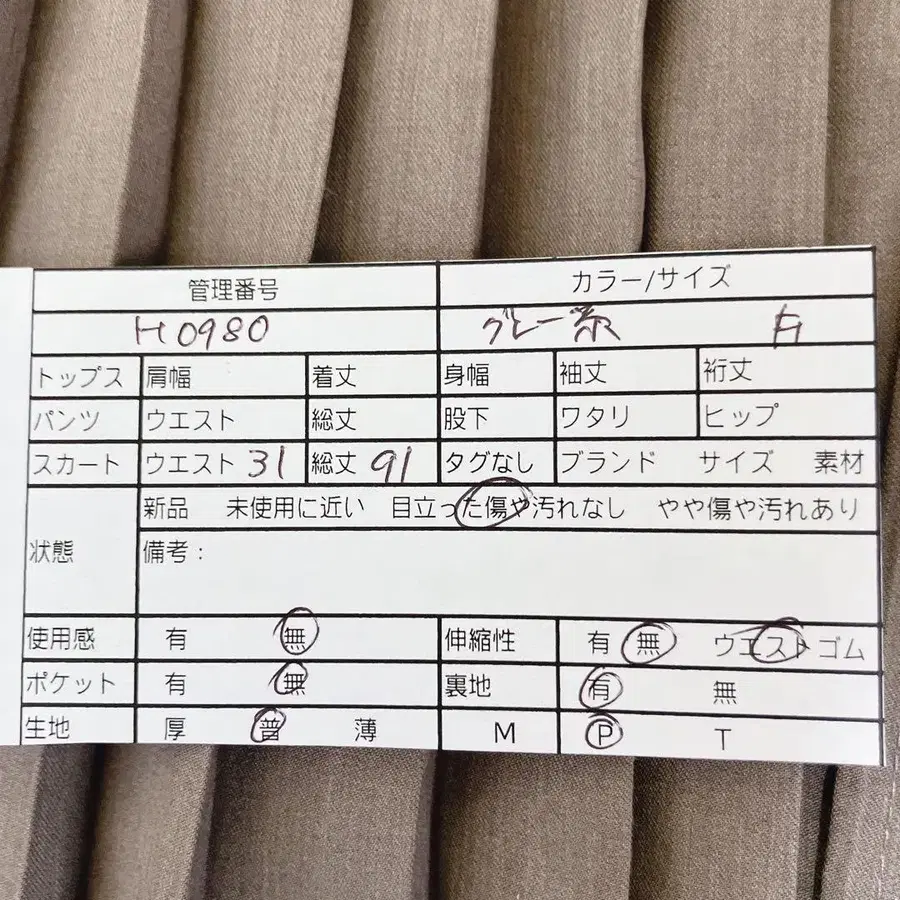 管理番号 カラー/サイズ
H0980 グレー系
トップス 肩幅 着丈 身幅 袖丈 裄丈
パンツ ウエスト 総丈 股下 ワタリ ヒップ
スカート ウエスト 31 総丈 91 タグなし ブランド サイズ 素材
新品 未使用に近い 目立った傷や汚れなし やや傷や汚れあり
状態 備考：
使用感 有 無 伸縮性 有 無 ウエストゴム
ポケット 有 無 裏地 有 無
生地 厚 普 薄 M P T